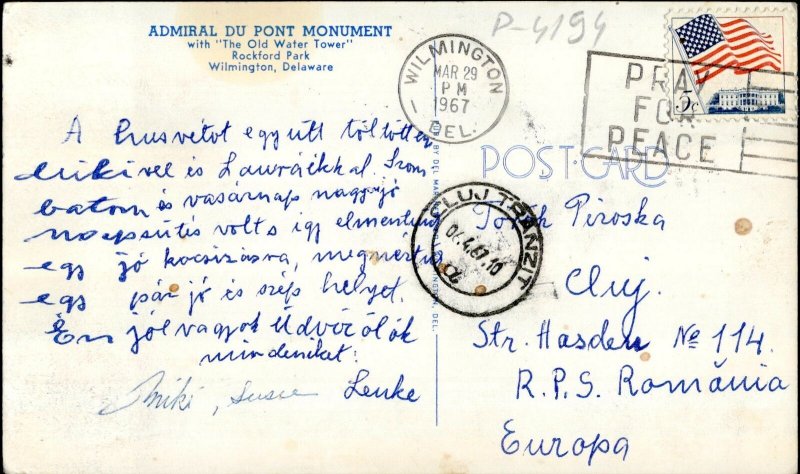 ADMIRAL DU PONT MONUMENT
with "The Old Water Tower"
Rockford Park
Wilmington, Delaware
P-4194
WILMINGTON
MAR 29
PM
1967
DEL.
PRAY
FOR
PEACE
5c
POST CARD
A husvétot együtt töltöttem
Mikivel és Lauráékkal. Szom-
baton és vasárnap nagy jó
napsütés volt s igy elmentünk
egy jó kocsizásra, megnéztünk
egy pár jó és szép helyet.
Én jól vagyok Üdvözölök
mindenkit:
Miki, Susie Lenke
CLUJ TRANZIT
01.4.67.10
Tóth Piroska
Cluj.
Str. Hasdeu № 114.
R.P.S. România
Europa